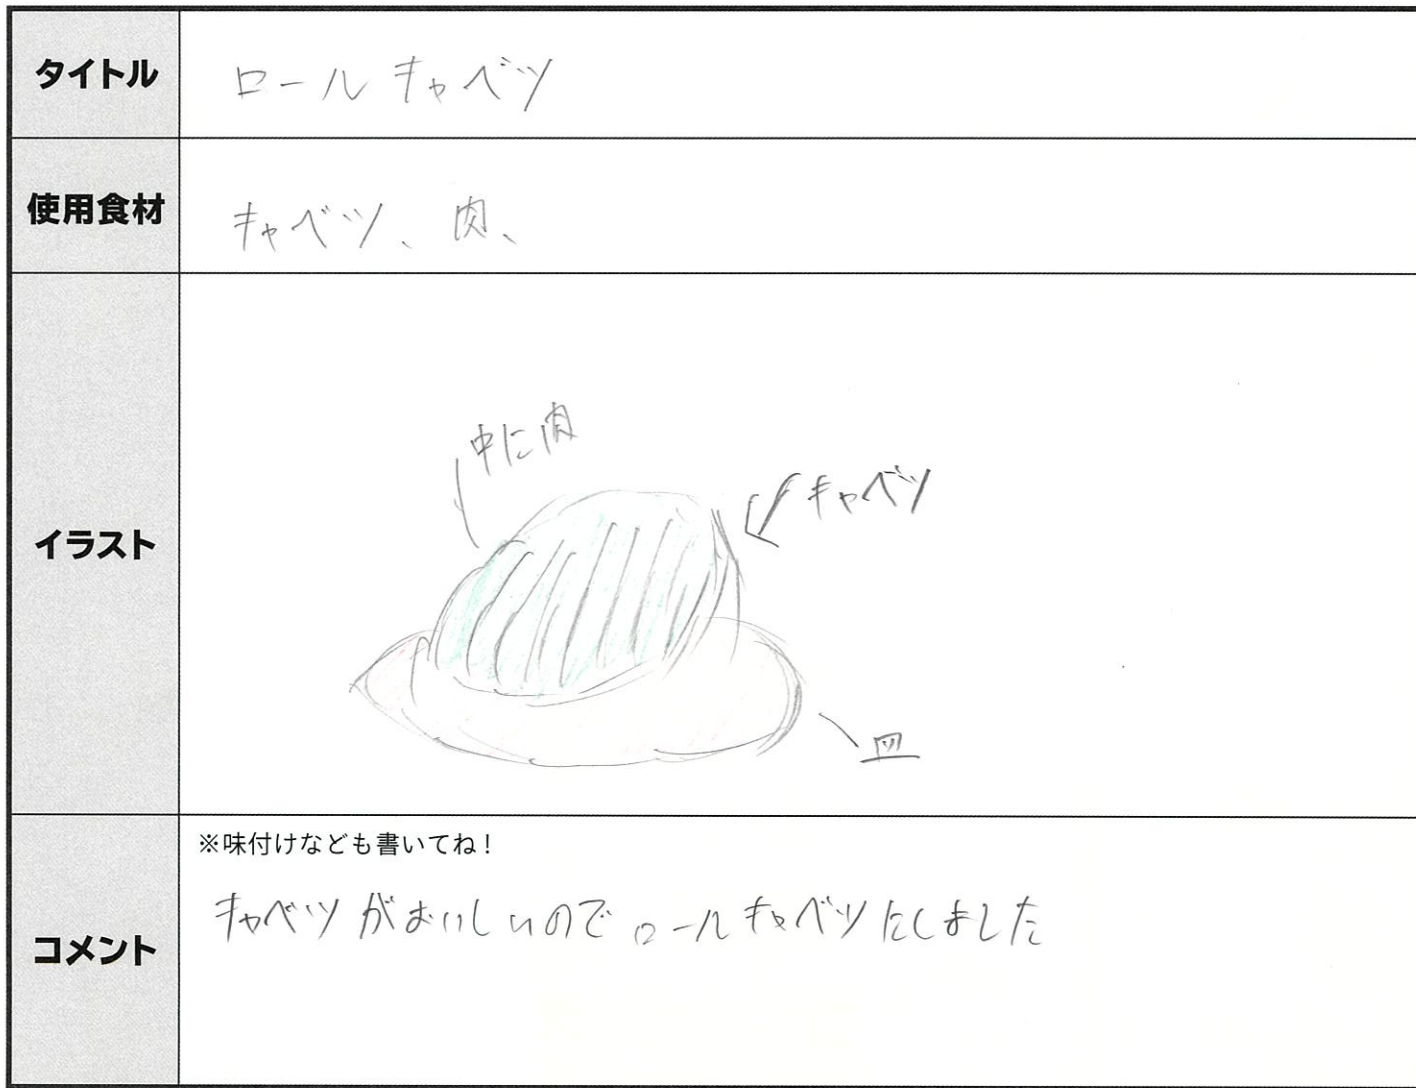 タイトル
ロールキャベツ
使用食材
キャベツ、肉、
イラスト
中に肉
キャベツ
皿
コメント
※味付けなども書いてね!
キャベツがおいしいのでロールキャベツにしました